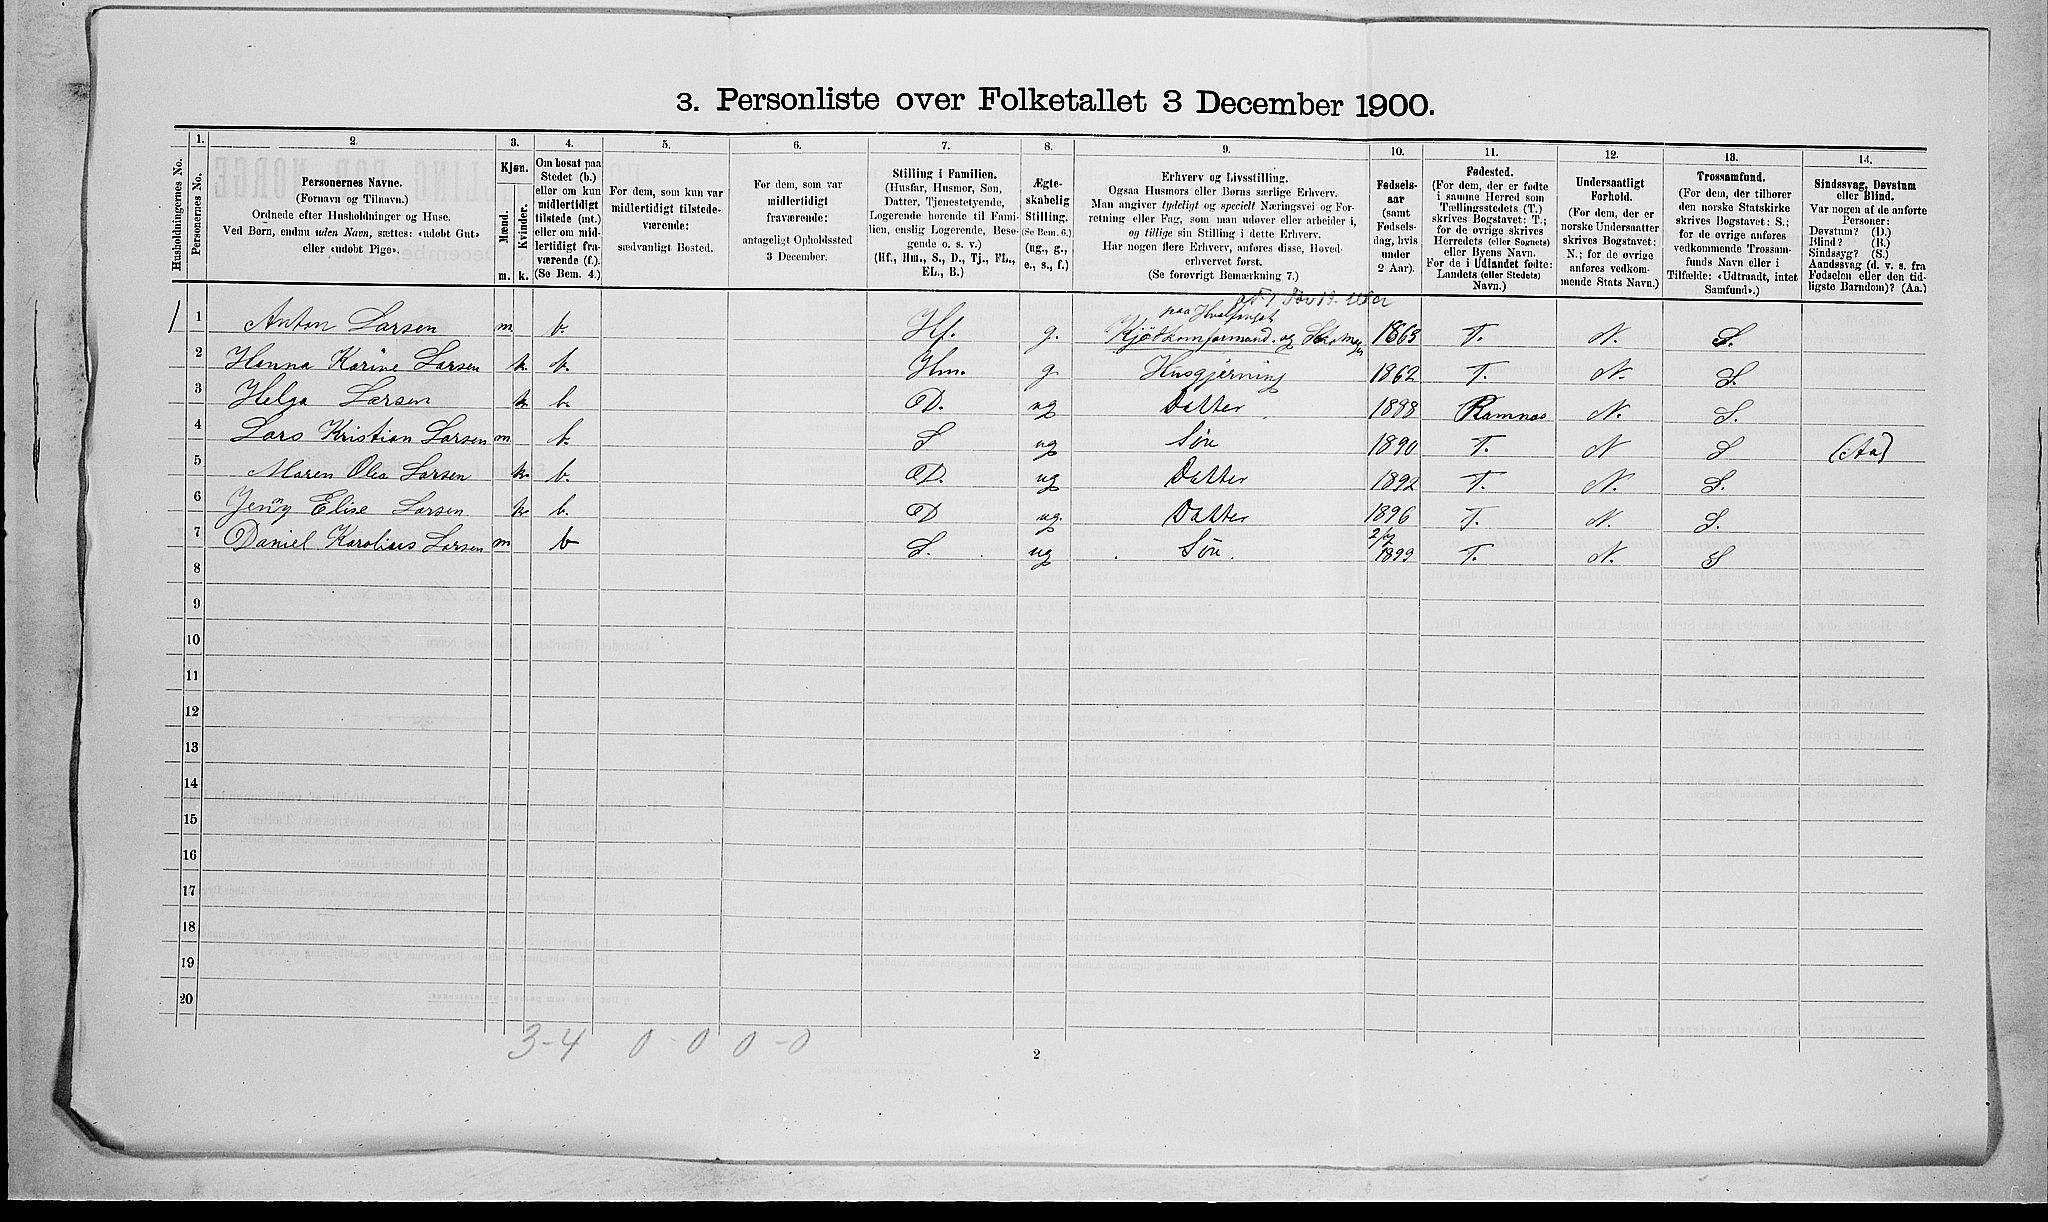 3. Personliste over Folketallet 3 December 1900.
1. 2. 3. 4. 5. 6. 7. 8. 9. 10. 11. 12. 13. 14.
Husholdningernes No.
Personernes No.
Personernes Navne.
(Fornavn og Tilnavn.)
Ordnede efter Husholdninger og Huse.
Ved Børn, endnu uden Navn, sættes: «udøbt Gut»
eller «udøbt Pige».
Kjøn.
Mænd.
Kvinder.
m. k.
Om bosat paa
Stedet (b.)
eller om kun
midlertidigt
tilstede (mt.)
eller om mid-
lertidigt fra-
værende (f.).
(Se Bem. 4.)
For dem, som kun var
midlertidigt tilstede-
værende:
sædvanligt Bosted.
For dem, som var
midlertidigt
fraværende:
antageligt Opholdssted
3 December.
Stilling i Familien.
(Husfar, Husmor, Søn,
Datter, Tjenestetyende,
Logerende hørende til Fami-
lien, enslig Logerende, Besø-
gende o. s. v.)
(Hf., Hm., S., D., Tj., FL.,
EL., B.)
Ægte-
skabelig
Stilling.
(Se Bem. 6.)
(ug., g.,
e., s., f.)
Erhverv og Livsstilling.
Ogsaa Husmors eller Børns særlige Erhverv.
Man angiver tydeligt og specielt Næringsvei og For-
retning eller Fag, som man udøver eller arbeider i,
og tillige sin Stilling i dette Erhverv.
Har nogen flere Erhverv, anføres disse, Hoved-
erhvervet først.
(Se forøvrigt Bemærkning 7.)
Fødsels-
aar
(samt
Fødsels-
dag, hvis
under
2 Aar).
Fødested.
(For dem, der er fødte
i samme Herred som
Tællingsstedets (T.)
skrives Bogstavet: T.;
for de øvrige skrives
Herredets (eller Sognets)
eller Byens Navn.
For de i Udlandet fødte:
Landets (eller Stedets)
Navn.)
Undersaatligt
Forhold.
(For dem, der er
norske Undersaatter
skrives Bogstavet:
N.; for de øvrige
anføres vedkom-
mende Stats Navn.)
Trossamfund.
(For dem, der tilhører
den norske Statskirke
skrives Bogstavet: S.;
for de øvrige anføres
vedkommende Trossam-
funds Navn eller i
Tilfælde: «Udtraadt, intet
Samfund».)
Sindssvag, Døvstum
eller Blind.
Var nogen af de anførte
Personer:
Døvstum? (D.)
Blind? (B.)
Sindssyg? (S.)
Aandssvag (d. v. s. fra
Fødselen eller den tid-
ligste Barndom)? (Aa.)
paa Hvalfangst
1 1 Anton Larsen m b. Hf. g. og 1863 T. N. S.
2 Hanna Karine Larsen k b. Hm. g Husgjerning 1862 T. N. S.
3 Helga Larsen k b. D. ug Datter 1888 Ramnas N. S.
4 Lars Kristian Larsen m b. S ug Søn 1890 T. N S (Aa)
5 Maren Olea Larsen k b. D. ug Datter 1892 T. N. S.
6 Jenny Elise Larsen k b. D ug. Datter 1896 T. N. S.
7 Daniel Karolius Larsen m b S. ug Søn. 2/7 1899 T. N. S
8
9
10
11
12
13
14
15
16
17
18
19
20
3-4 0-0 0-0
2